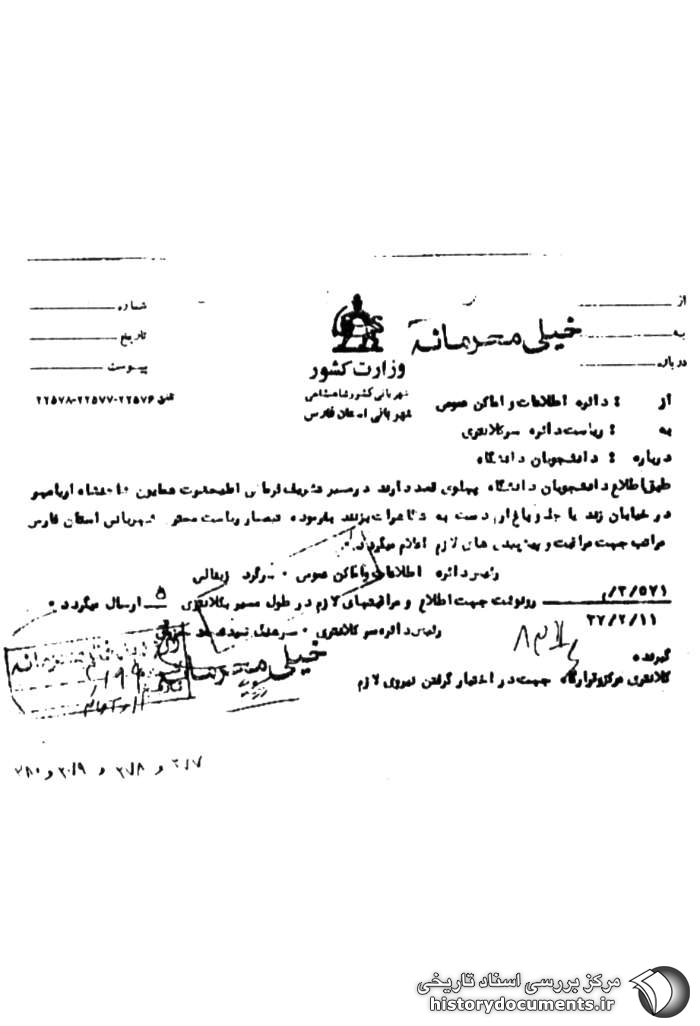 از
شماره
به
تاریخ
درباره
پیوست
خیلی محرمانه
وزارت کشور
شهربانی کشور شاهنشاهی
شهربانی استان فارس
تلفن ۲۲۵۷۶-۲۲۵۷۷-۲۲۵۷۸
از : دائره اطلاعات و اماکن عمومی
به : ریاست دائره سرکلانتری
درباره : دانشجویان دانشگاه
طبق اطلاع دانشجویان دانشگاه پهلوی قصد دارند در مسیر تشریف فرمائی اعلیحضرت همایون شاهنشاه آریامهر
در خیابان زند یا جلو باغ ارم دست به تظاهرات بزنند بفرموده تیمسار ریاست محترم شهربانی استان فارس
مراتب جهت مراقبت و پیش بینی های لازم اعلام میگردد.
رئیس دائره اطلاعات و اماکن عمومی ۰ سرگرد
۲/۵۷۱ رونوشت جهت اطلاع و مراقبتهای لازم در طول مسیر بکلانتری ۵ ارسال میگردد ۰
رئیس دائره سرکلانتری ۰
گیرنده
کلانتری مرکز و قرارگاه جهت در اختیار گرفتن نیروی لازم
خیلی محرمانه
مرکز بررسی اسناد تاریخی
historydocuments.ir